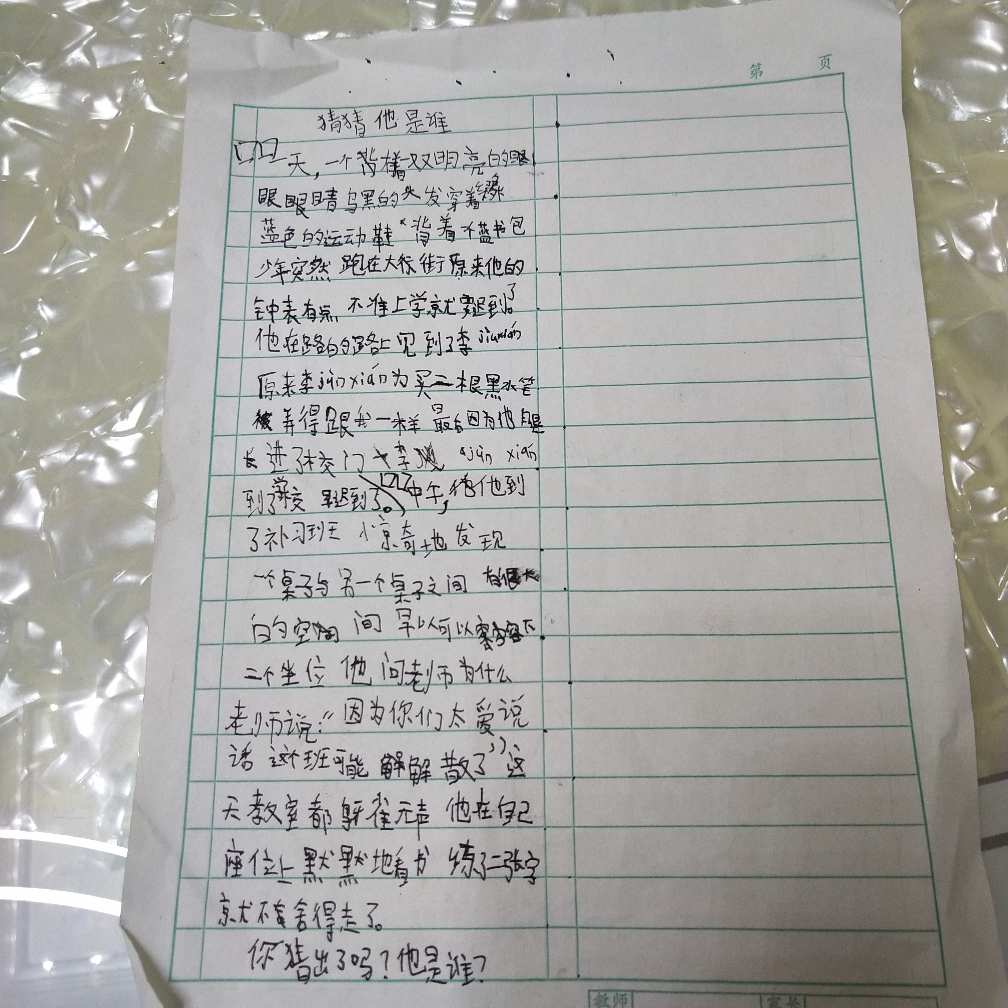 第 页
猜猜他是谁
一天，一个背着一双明亮的眼
眼睛乌黑的头发穿着
蓝色的运动鞋背着 蓝书包
少年突然跑在大街 原来他的
钟表有点不准上学就要迟到了
他在路的路上见到了李jianxián
原来李jiànxián为买二根黑水笔
被弄得跟我一样 最后因为他腿
长进了校门 李 jiàn xián
到了学校 迟到了。中午，他到
了补习班 惊奇地发现
一个桌子与另一个桌子之间 有很大
的空间 可以 容下
二个坐位 他问老师为什么
老师说："因为你们太爱说
话 这个班可能 解散了"这
天教室都鸦雀无声 他在自己
座位上默默地看书 练了二张字
就不舍得走了。
你猜出了吗？他是谁？
教师 家长